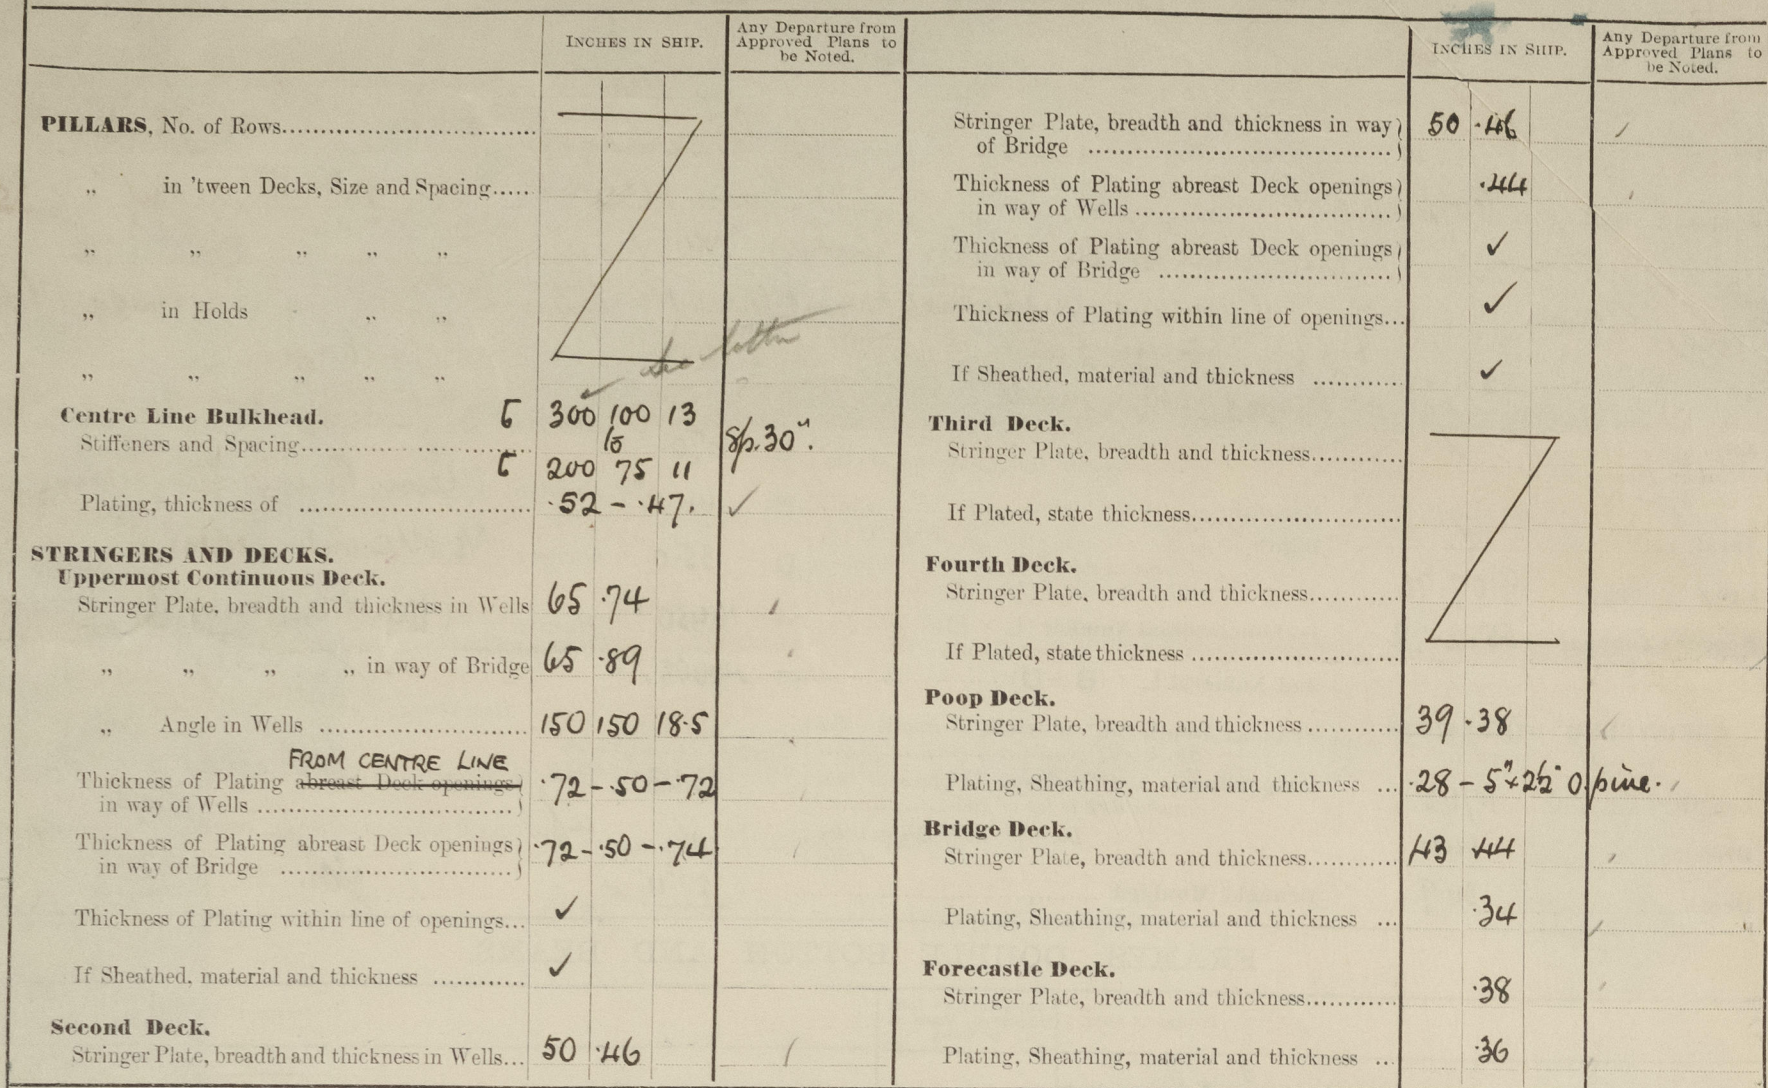 INCHES IN SHIP.
Any Departure from
Approved Plans to
be Noted.
PILLARS, No. of Rows
„ in 'tween Decks, Size and Spacing
„ „ „ „ „
„ in Holds „ „
„ „ „ „ „
see letter
Centre Line Bulkhead. 300 100 13
Stiffeners and Spacing to Sp. 30".
200 75 11
Plating, thickness of .52 - .47. ✓
STRINGERS AND DECKS.
Uppermost Continuous Deck.
Stringer Plate, breadth and thickness in Wells 65 .74
„ „ „ „ in way of Bridge 65 .89
„ Angle in Wells 150 150 18.5
FROM CENTRE LINE
Thickness of Plating abreast Deck openings .72 - .50 - .72
in way of Wells
Thickness of Plating abreast Deck openings .72 - .50 - .74
in way of Bridge
Thickness of Plating within line of openings... ✓
If Sheathed, material and thickness ✓
Second Deck.
Stringer Plate, breadth and thickness in Wells... 50 .46
INCHES IN SHIP.
Any Departure from
Approved Plans to
be Noted.
Stringer Plate, breadth and thickness in way 50 .46
of Bridge
Thickness of Plating abreast Deck openings .44
in way of Wells
Thickness of Plating abreast Deck openings ✓
in way of Bridge
Thickness of Plating within line of openings... ✓
If Sheathed, material and thickness ✓
Third Deck.
Stringer Plate, breadth and thickness
If Plated, state thickness
Fourth Deck.
Stringer Plate, breadth and thickness
If Plated, state thickness
Poop Deck.
Stringer Plate, breadth and thickness 39 .38
Plating, Sheathing, material and thickness ... .28 - 5" x 2½" O. pine.
Bridge Deck.
Stringer Plate, breadth and thickness 43 .44
Plating, Sheathing, material and thickness ... .34
Forecastle Deck.
Stringer Plate, breadth and thickness .38
Plating, Sheathing, material and thickness ... .36